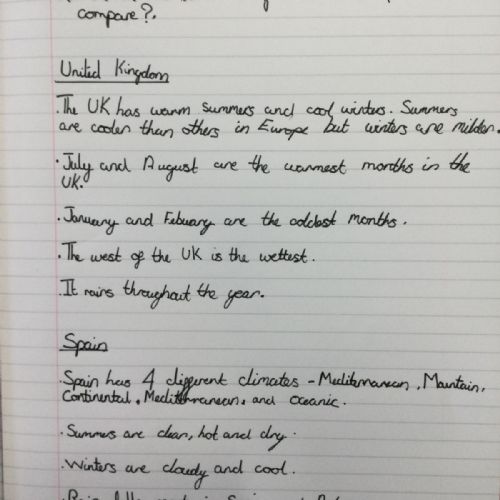 compare?.
United Kingdom
. The UK has warm summers and cool winters. Summers
are cooler than others in Europe but winters are milder.
. July and August are the warmest months in the
UK.
. January and Febuary are the coldest months.
. The west of the UK is the wettest.
. It rains throughout the year.
Spain
. Spain has 4 different climates - Mediterranean, Mountain,
Continental, Mediterranean, and oceanic.
. Summers are clear, hot and dry.
. Winters are cloudy and cool.